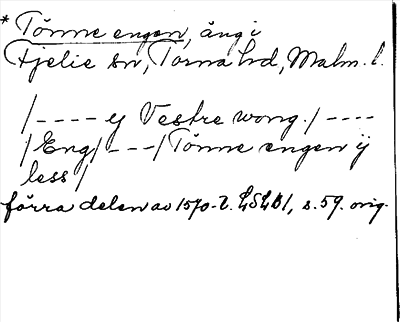 * Tönne engen, äng i
Fjelie sn, Torna hd, Malm. l.
/ - - - - ej Vestre wong. / - - - -
/ Eng / - - - / Tönne engen ij
less /
förra delen av 1570-t. LSLB1, s. 59. orig.